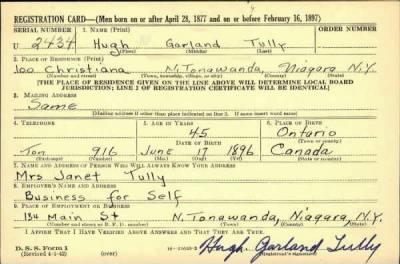 REGISTRATION CARD—(Men born on or after April 28, 1877 and on or before February 16, 1897)
SERIAL NUMBER 1. NAME (Print) ORDER NUMBER
U 2434 Hugh Garland Tully
(First) (Middle) (Last)
2. PLACE OF RESIDENCE (Print)
100 Christiana N. Tonawanda, Niagara N.Y.
(Number and street) (Town, township, village, or city) (County) (State)
[THE PLACE OF RESIDENCE GIVEN ON THE LINE ABOVE WILL DETERMINE LOCAL BOARD
JURISDICTION; LINE 2 OF REGISTRATION CERTIFICATE WILL BE IDENTICAL]
3. MAILING ADDRESS
Same
[Mailing address if other than place indicated on line 2. If same insert word same]
4. TELEPHONE 5. AGE IN YEARS 6. PLACE OF BIRTH
45 Ontario
DATE OF BIRTH (Town or county)
Ton 916 June 17 1896 Canada
(Exchange) (Number) (Mo.) (Day) (Yr.) (State or country)
7. NAME AND ADDRESS OF PERSON WHO WILL ALWAYS KNOW YOUR ADDRESS
Mrs Janet Tully
8. EMPLOYER'S NAME AND ADDRESS
Business for Self
9. PLACE OF EMPLOYMENT OR BUSINESS
134 Main St N. Tonawanda, Niagara, N.Y.
(Number and street or R. F. D. number) (Town) (County) (State)
I AFFIRM THAT I HAVE VERIFIED ABOVE ANSWERS AND THAT THEY ARE TRUE.
D. S. S. Form 1
(Revised 4-1-42) (over) Hugh Garland Tully
(Registrant's signature)